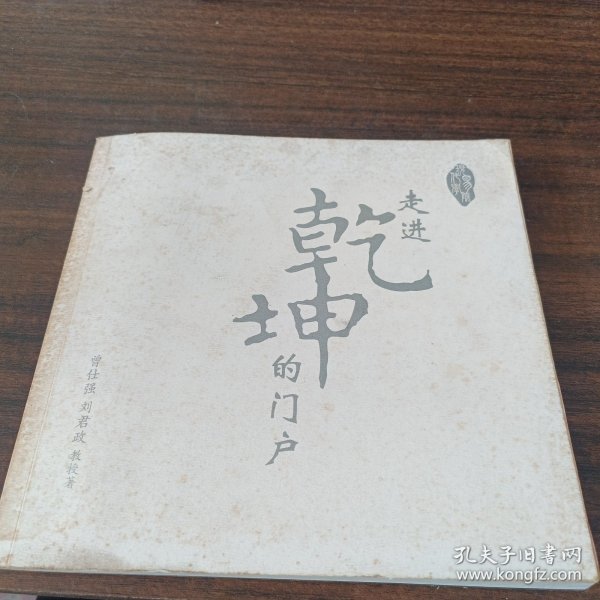 走进
乾坤
的门户
曾仕强 刘君政 教授著
孔夫子旧书网
www.kongfz.com